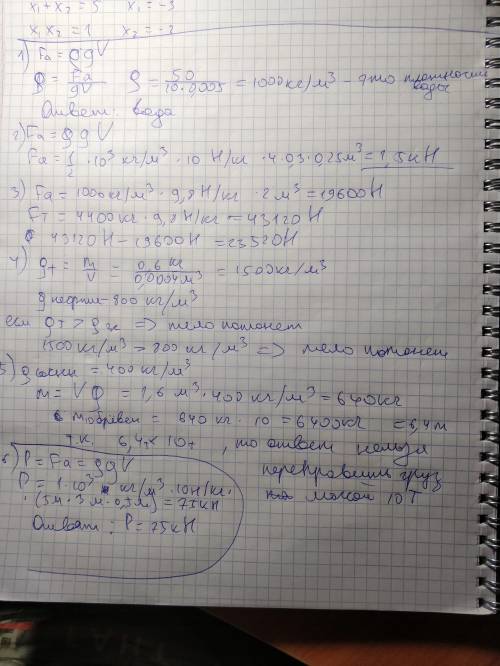 x₁ + x₂ = 5   x₁ = -3
x₁x₂ = 1   x₂ = -2
1) Fa = ρgV
ρ = Fa/gV   ρ = 50/10·0,005 = 1000кг/м³ - это плотность воды
Ответ: вода
2) Fa = ρgV
Fa = 1/2 · 10³ кг/м³ · 10 Н/кг · 4·0,3·0,25м³ = 1,5кН
3) Fa = 1000кг/м³ · 9,8Н/кг · 2м³ = 19600Н
Fт = 4400кг · 9,8Н/кг = 43120Н
43120Н - 19600Н = 23520Н
4) ρт = m/V = 0,6кг/0,0004м³ = 1500кг/м³
ρ нефти = 800 кг/м³
если ρт > ρж => тело потонет
1500кг/м³ > 800кг/м³ => тело потонет
5) ρ сосны = 400кг/м³
m = Vρ = 1,6м³ · 400кг/м³ = 640кг
m бревен = 640кг · 10 = 6400кг = 6,4т
т.к. 6,4т < 10т, то ответ нельзя
переправить груз
массой 10Т
6) P = Fa = ρgV
P = 1·10³ кг/м³ · 10Н/кг ·
· (5м · 3м · 0,5м) = 75кН
Ответ: P = 75кН